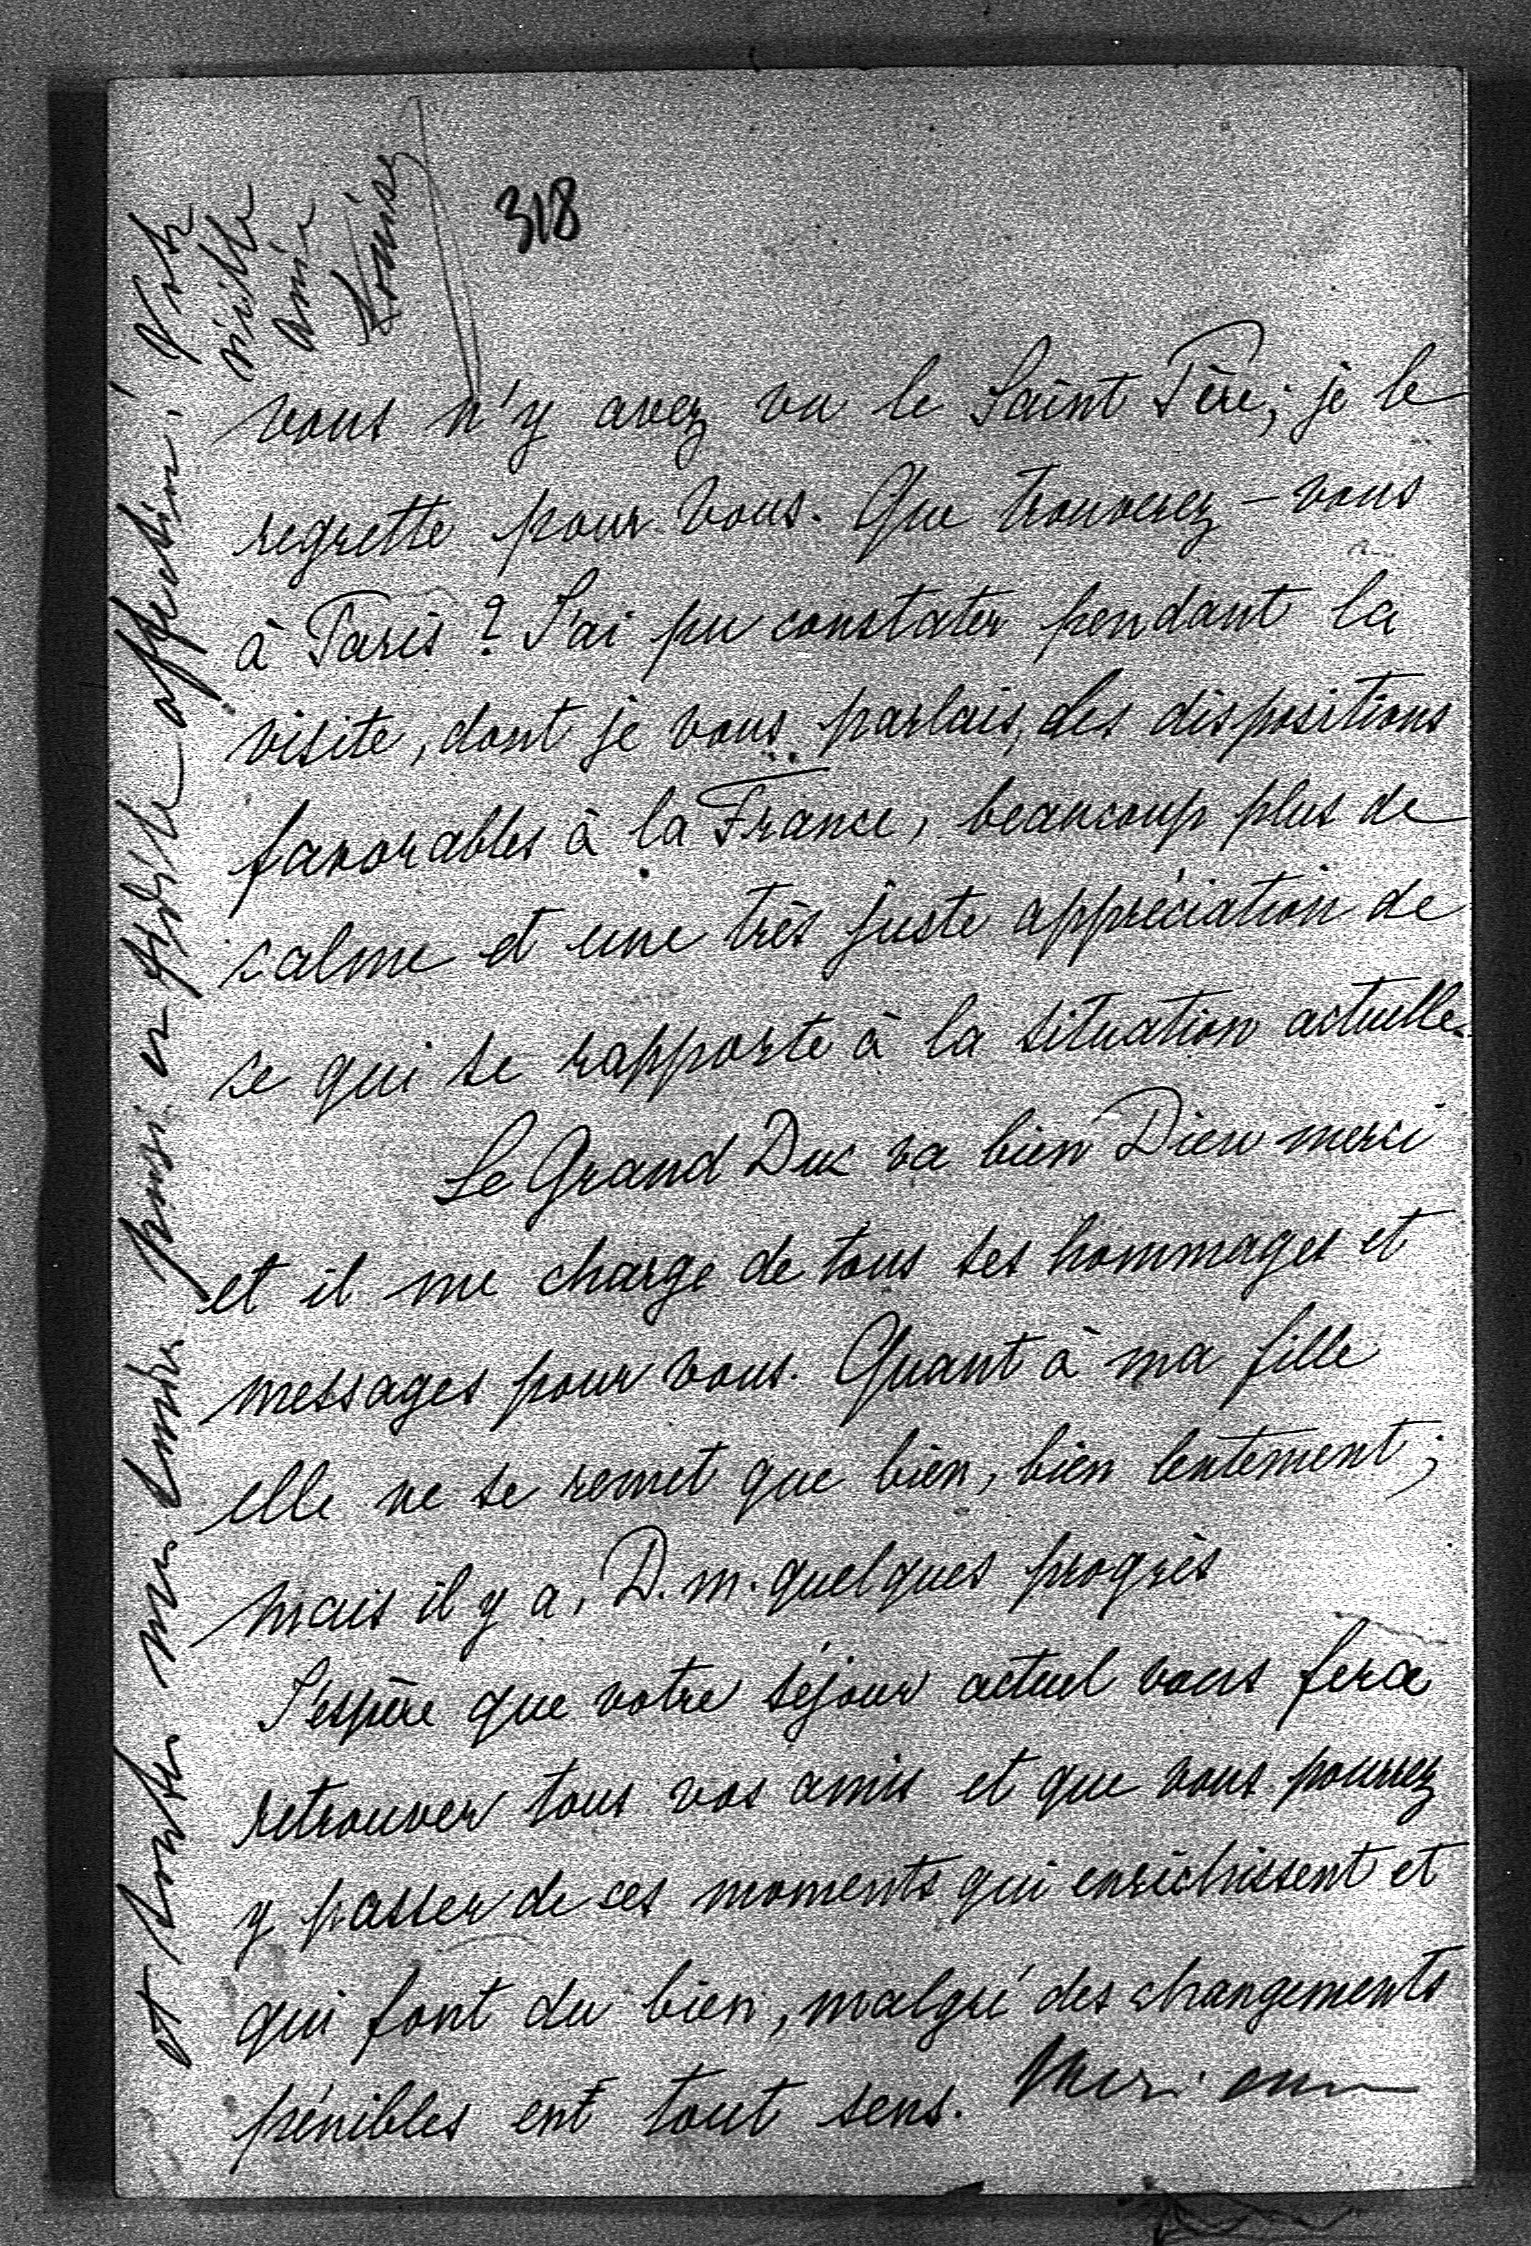 318
vous n'y avez vu le Saint Père; je le
regrette pour vous. Que trouverez-vous
à Paris? J'ai pu constater pendant la
visite, dont je vous parlais, des dispositions
favorables à la France, beaucoup plus de
calme et une très juste appréciation de
ce qui se rapporte à la situation actuelle.
Le Grand Duc va bien Dieu merci
et il me charge de tous ses hommages et
messages pour vous. Quant à ma fille
elle ne se remet que bien, bien lentement;
mais il y a, D.m. quelques progrès
J'espère que votre séjour actuel vous fera
retrouver tous vos amis et que vous pourrez
y passer de ces moments qui enrichissent et
qui font du bien, malgré des changements
pénibles en tout sens.
et toute ma tendre et fidèle affection!
Votre
vieille
amie
Louise